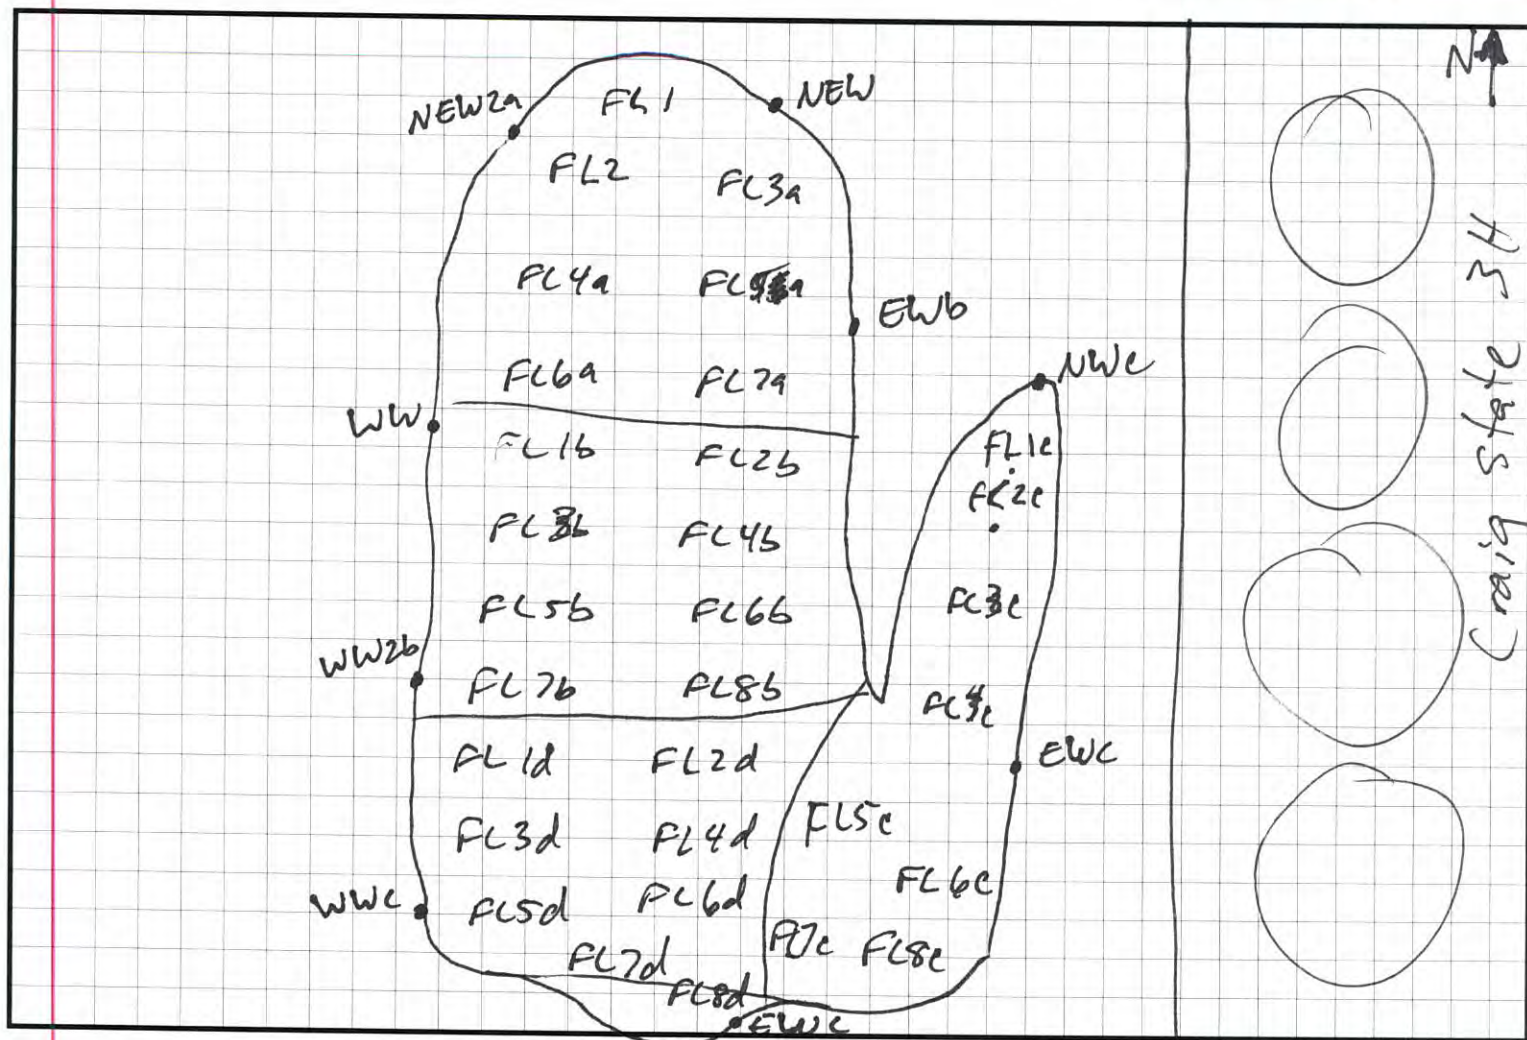 N
NEW2a FL1 NEW
FL2 FL3a
FL4a FL5a
EWb
FL6a FL7a NWc
WW
FL1b FL2b FL1c
FL2c
FL3b FL4b
FL5b FL6b FL3c
WW2b
FL7b FL8b FL4c
FL1d FL2d EWC
FL3d FL4d FL5c
WWC FL5d FL6d FL6c
FL7d FL7c FL8c
FL8d
EWC
Craig State 3H